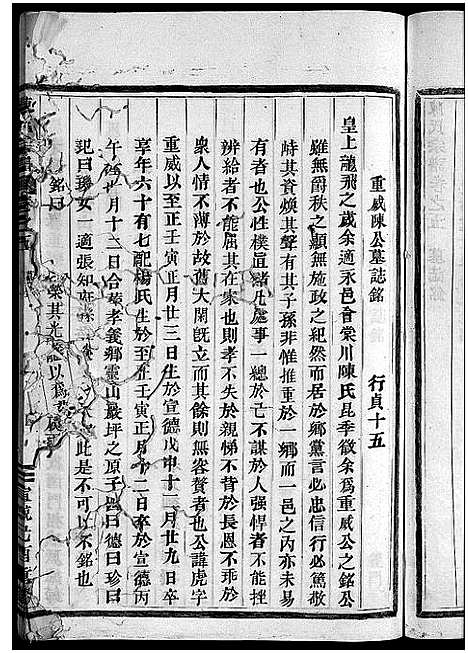 重威陳公墓誌銘
行貞十五
皇上龍飛之歲余適永邑會棠川陳氏昆季徵余為重威公之銘公
雖無爵秩之顯無施政之紀然而居於鄉黨言必忠信行必篤敬
時其資煥其聲有其子孫非惟推重於一鄉而一邑之內亦未易
有者也公性樸直諸凡處事一總於己不謀於人强悍者不能挫
辨給者不能屈其在家也則孝不失於親悌不背於長恩不乖於
衆人情不薄於故舊大閑旣立而其餘則無容贅者也公諱虎字
重威以至正壬寅正月廿三日生於宣德戊申十二月廿九日卒
享年六十有七配楊氏生於至正壬寅正月十二日卒於宣德丙
午 月十二日合葬孝義鄉靈山嚴坪之原子 曰德曰珍曰
玘曰 女一適張知 此是不可以不銘也
銘曰
榮其光 以爲